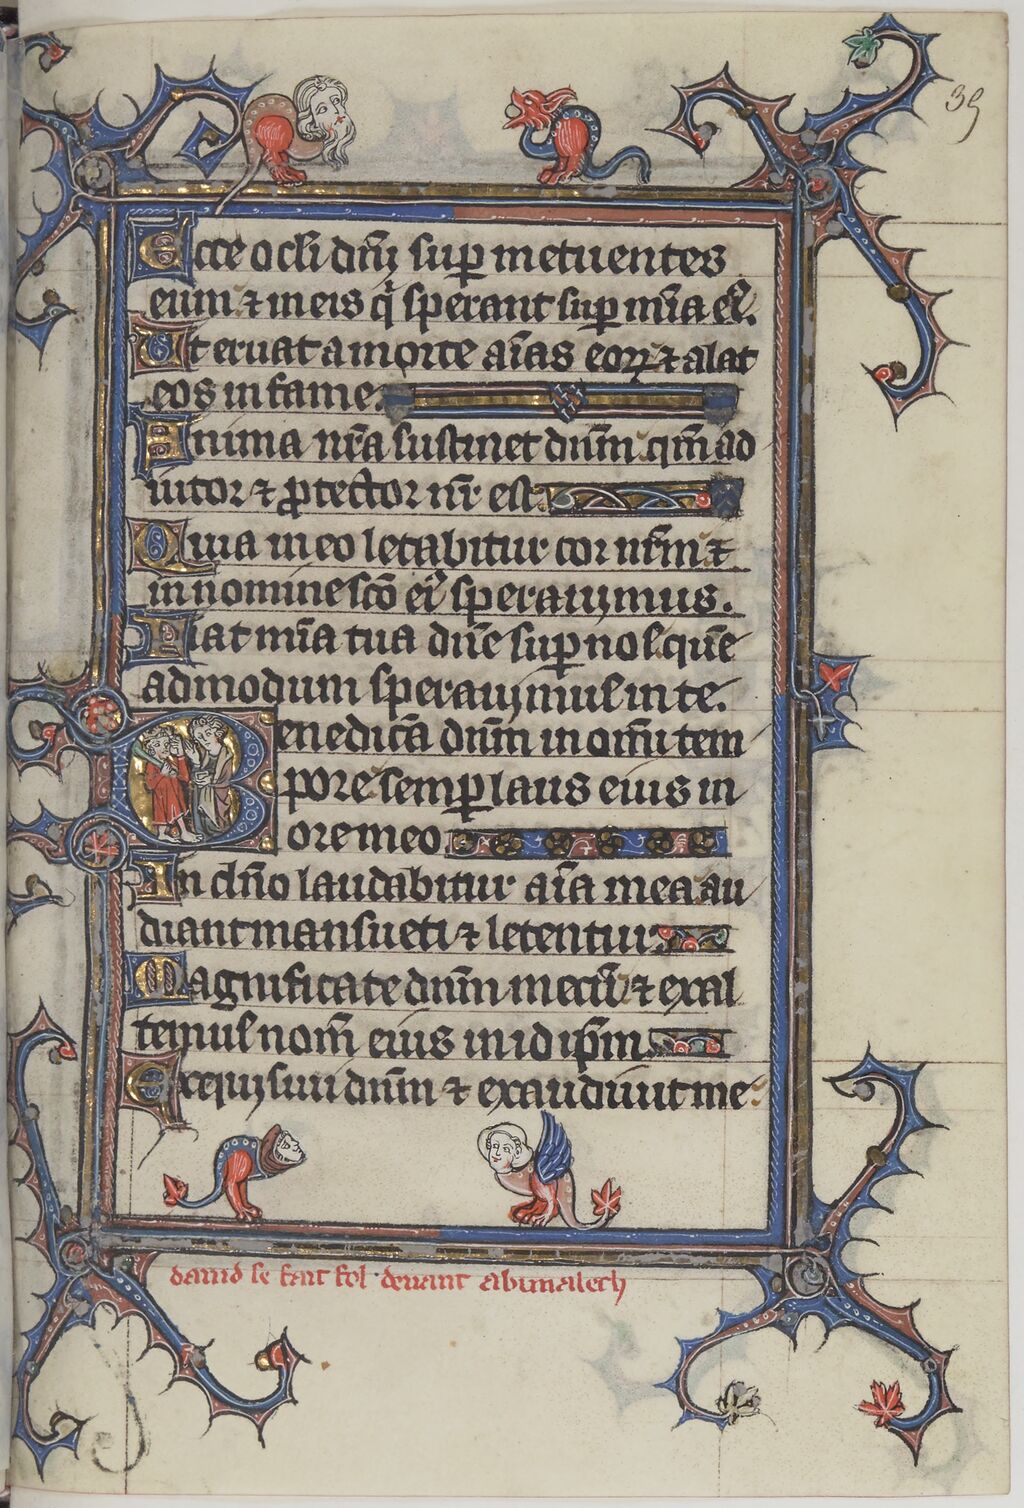 39
Ecce ocli dn̄j sup metuentes
eum ⁊ in eis q̇ sperant sup mīa eꝰ.
Ut eruat a morte aīas eoꝝ ⁊ alat
eos in fame.
Anima nr̄a sustinet dn̄m qm̄ ad
iutor ⁊ ꝓtector nr̄ est
Quia in eo letabitur cor nr̄m ⁊
in nomine sc̄o eiꝰ speraujmus.
Fiat mīa tua dn̄e sup nos que
admodum speraujmus in te.
Benedicā dn̄m in om̄i tem
pore semp laus eius in
ore meo
In dn̄o laudabitur aīa mea au
diant mansueti ⁊ letentur
Magnificate dn̄m mecū ⁊ exal
temus nom̄ eius in id ip̄m
Exqujsiui dn̄m ⁊ exaudiuit me
dauid se fait fol deuant abimalech